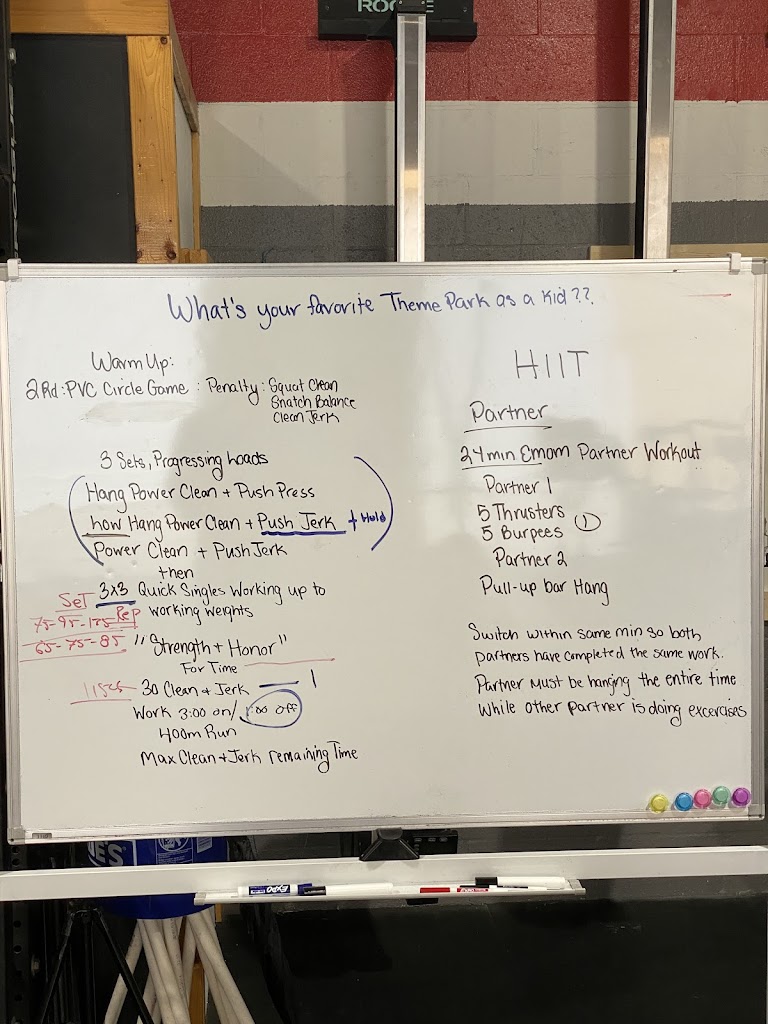 What's your favorite Theme Park as a kid??
Warm Up:
2Rd:PVC Circle Game : Penalty: Squat Clean
Snatch Balance
Clean Jerk
3 Sets, Progressing Loads
Hang Power Clean + Push Press
how Hang Power Clean + Push Jerk + Hold
Power Clean + Push Jerk
then
Set 3x3 Quick Singles Working up to
75-95-125 Rep working weights
65-75-85 "Strength + Honor"
For Time
30 Clean + Jerk — 1
Work 3:00 on/ 1:00 off
400m Run
Max Clean + Jerk remaining Time
HIIT
Partner
24min Emom Partner Workout
Partner 1
5 Thrusters
5 Burpees 1
Partner 2
Pull-up bar Hang
Switch within same min so both
partners have completed the same work.
Partner must be hanging the entire time
while other partner is doing excercises
EXPO
ES